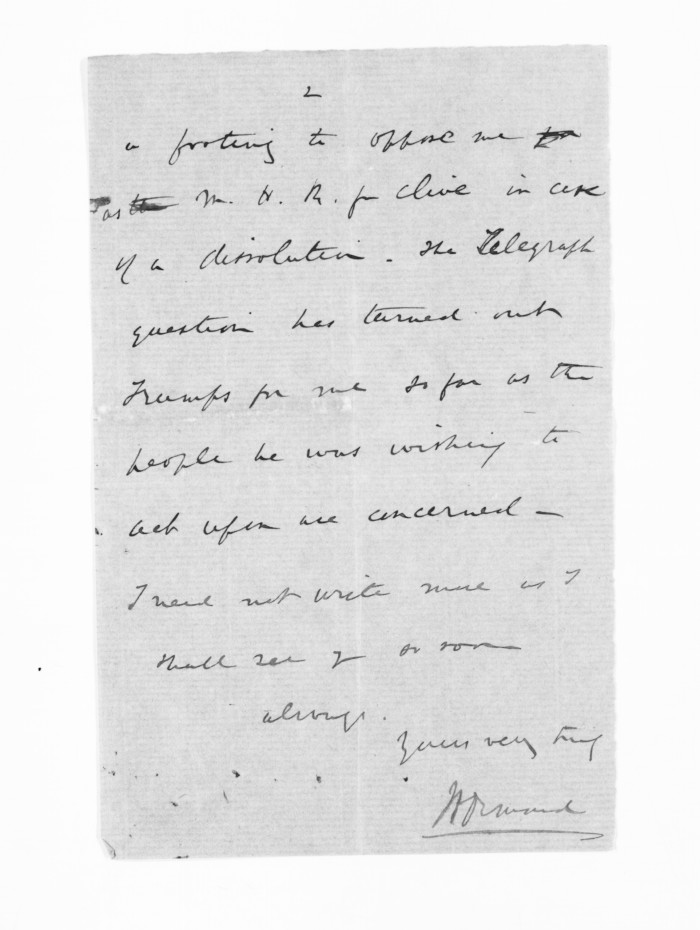 2
a footing to oppose me
as M. H. R. for Clive in case
of a dissolution. The Telegraph
question has turned out
Trumps for me so far as the
people he was wishing to
act upon are concerned —
I need not write more as I
shall see y so soon
always.
Yours very truly
JDOrmond